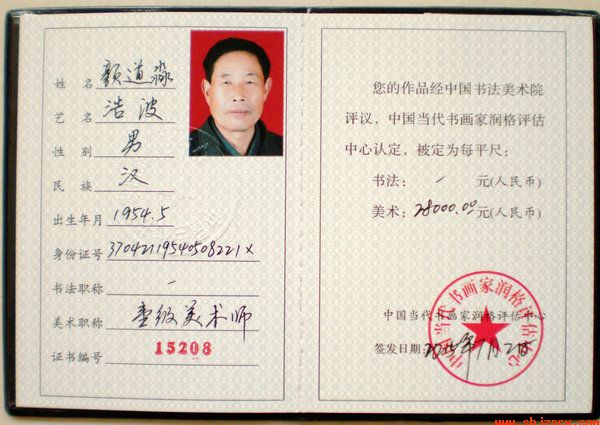 姓 名 颜道淼
艺 名 浩波
性 别 男
民 族 汉
出生年月 1954.5
身份证号 37042119540508221X
书法职称 一
美术职称 壹级美术师
证书编号 15208
您的作品经中国书法美术院
评议，中国当代书画家润格评估
中心认定，被定为每平尺：
书法： 一 元(人民币)
美术： 28000.00 元(人民币)
中国当代书画家润格评估中心
签发日期：
中国当代书画家润格评估中心